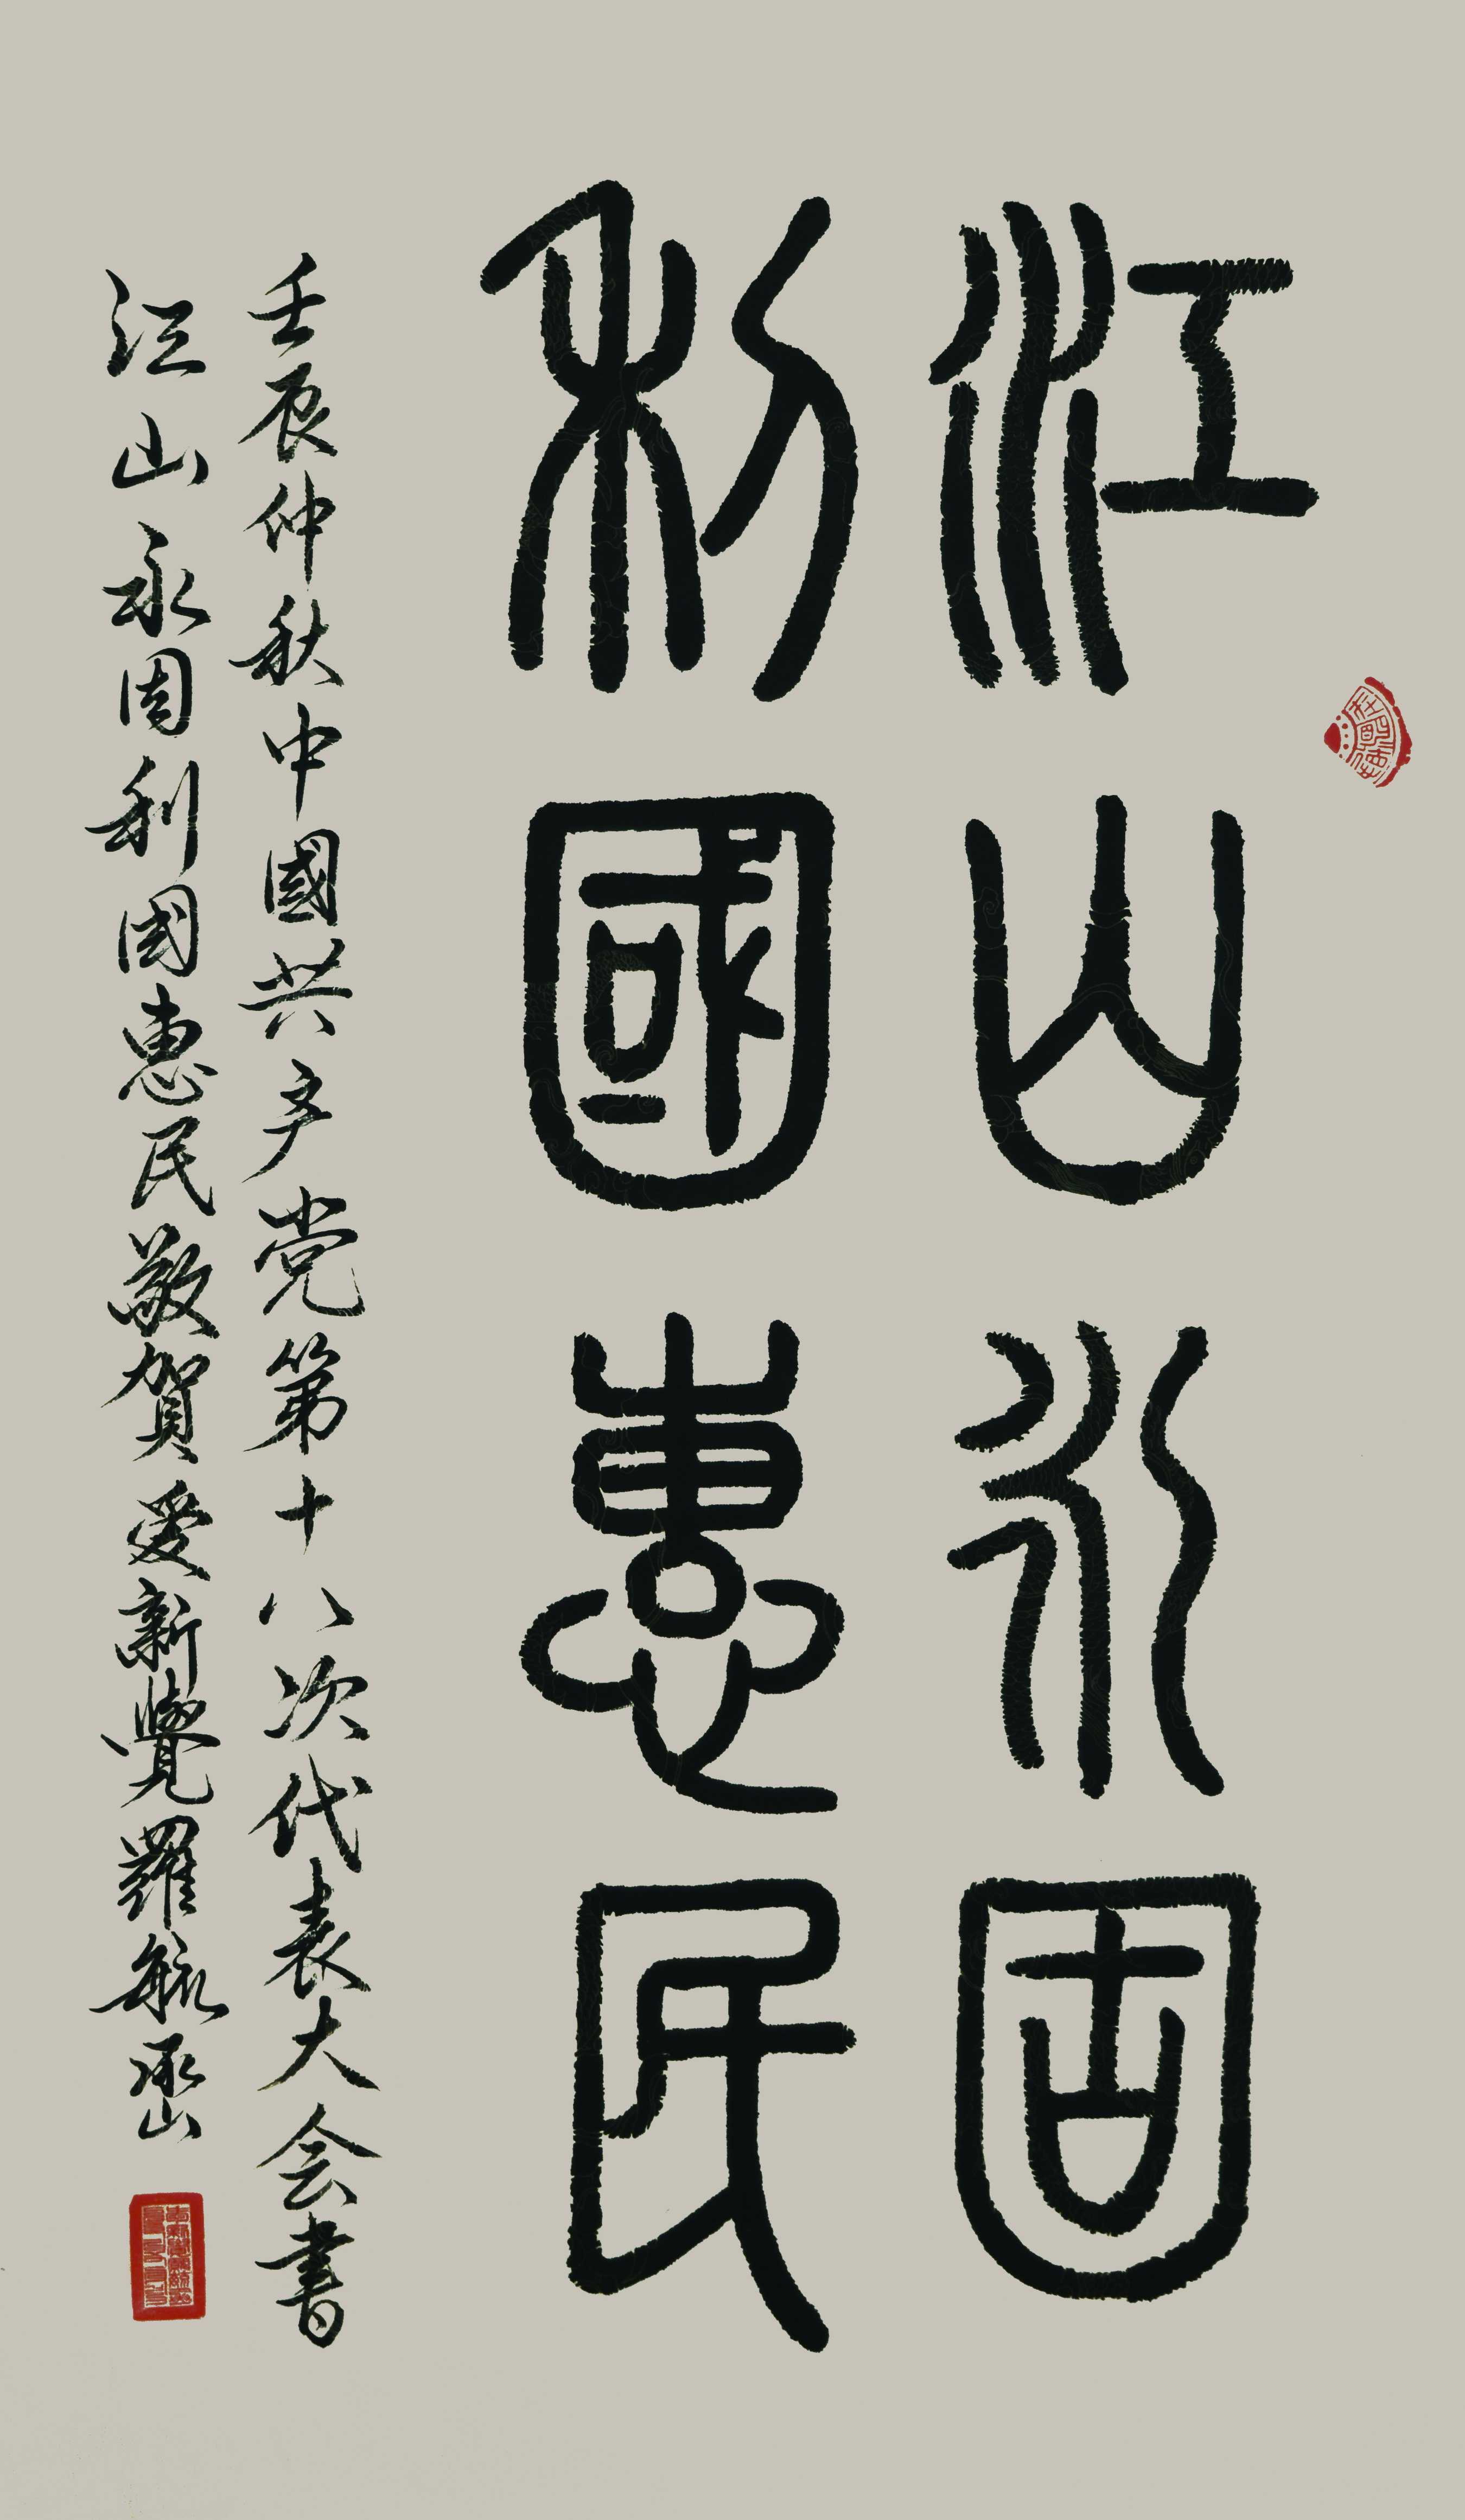 江山永固
利國惠民
壬辰仲秋中國共产党第十八次代表大会書
江山永固利國惠民敬賀愛新覺羅毓岙